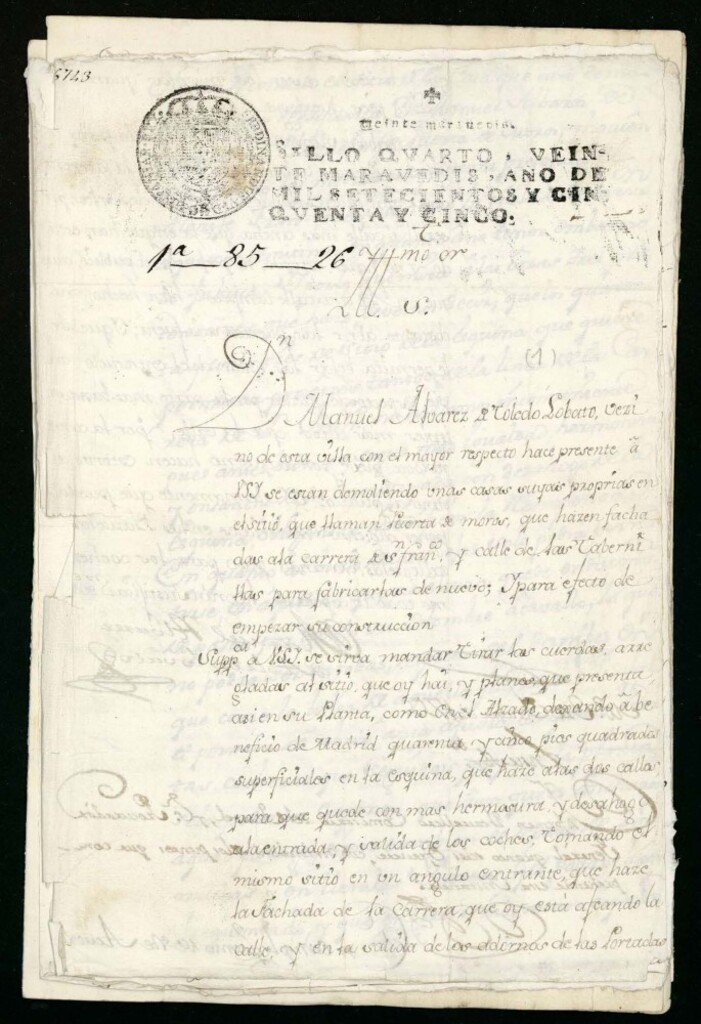 6743
Veinte maravedis.
SELLO QVARTO, VEIN-
TE MARAVEDIS, AÑO DE
MIL SETECIENTOS Y CIN-
QVENTA Y CINCO.
1ª 85 26 Yllmo or
M. S.
(1)
Dn Manuel Alvarez de Toledo Lobato, vezi
no de esta villa con el mayor respecto hace presente â
VSY se estan demoliendo unas casas suyas proprias en
el sitio, que llaman Puerta de moros, que hazen facha
das a la carrera de Sn franco, y calle de las Taberni
llas para fabricarlas de nuevo; Y para efecto de
empezar su construccion
Suppca a VSY. se sirva mandar Tirar las cuerdas, arre
gladas al sitio, que oy hai, y planes, que presenta,
asi en su Planta, como en el Alzado, dexando â be
neficio de Madrid quarenta, y cinco pies quadrados
superficiales en la esquina, que haze a las dos calles
para que quede con mas hermosura, y desahogo
a la entrada, y salida de los coches, Tomando el
mismo sitio en un angulo entrante, que haze
la Fachada de la Carrera, que oy está afeando la
calle, y en la salida de los adornos de las Portadas